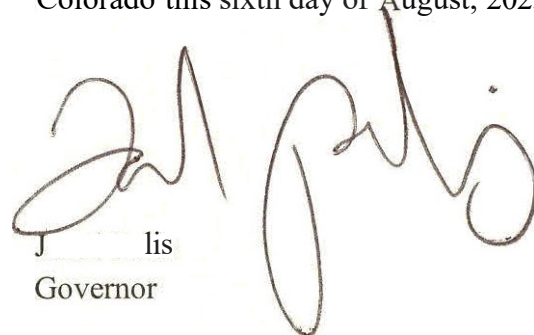 Colorado this sixth day of August, 202
J lis
Governor